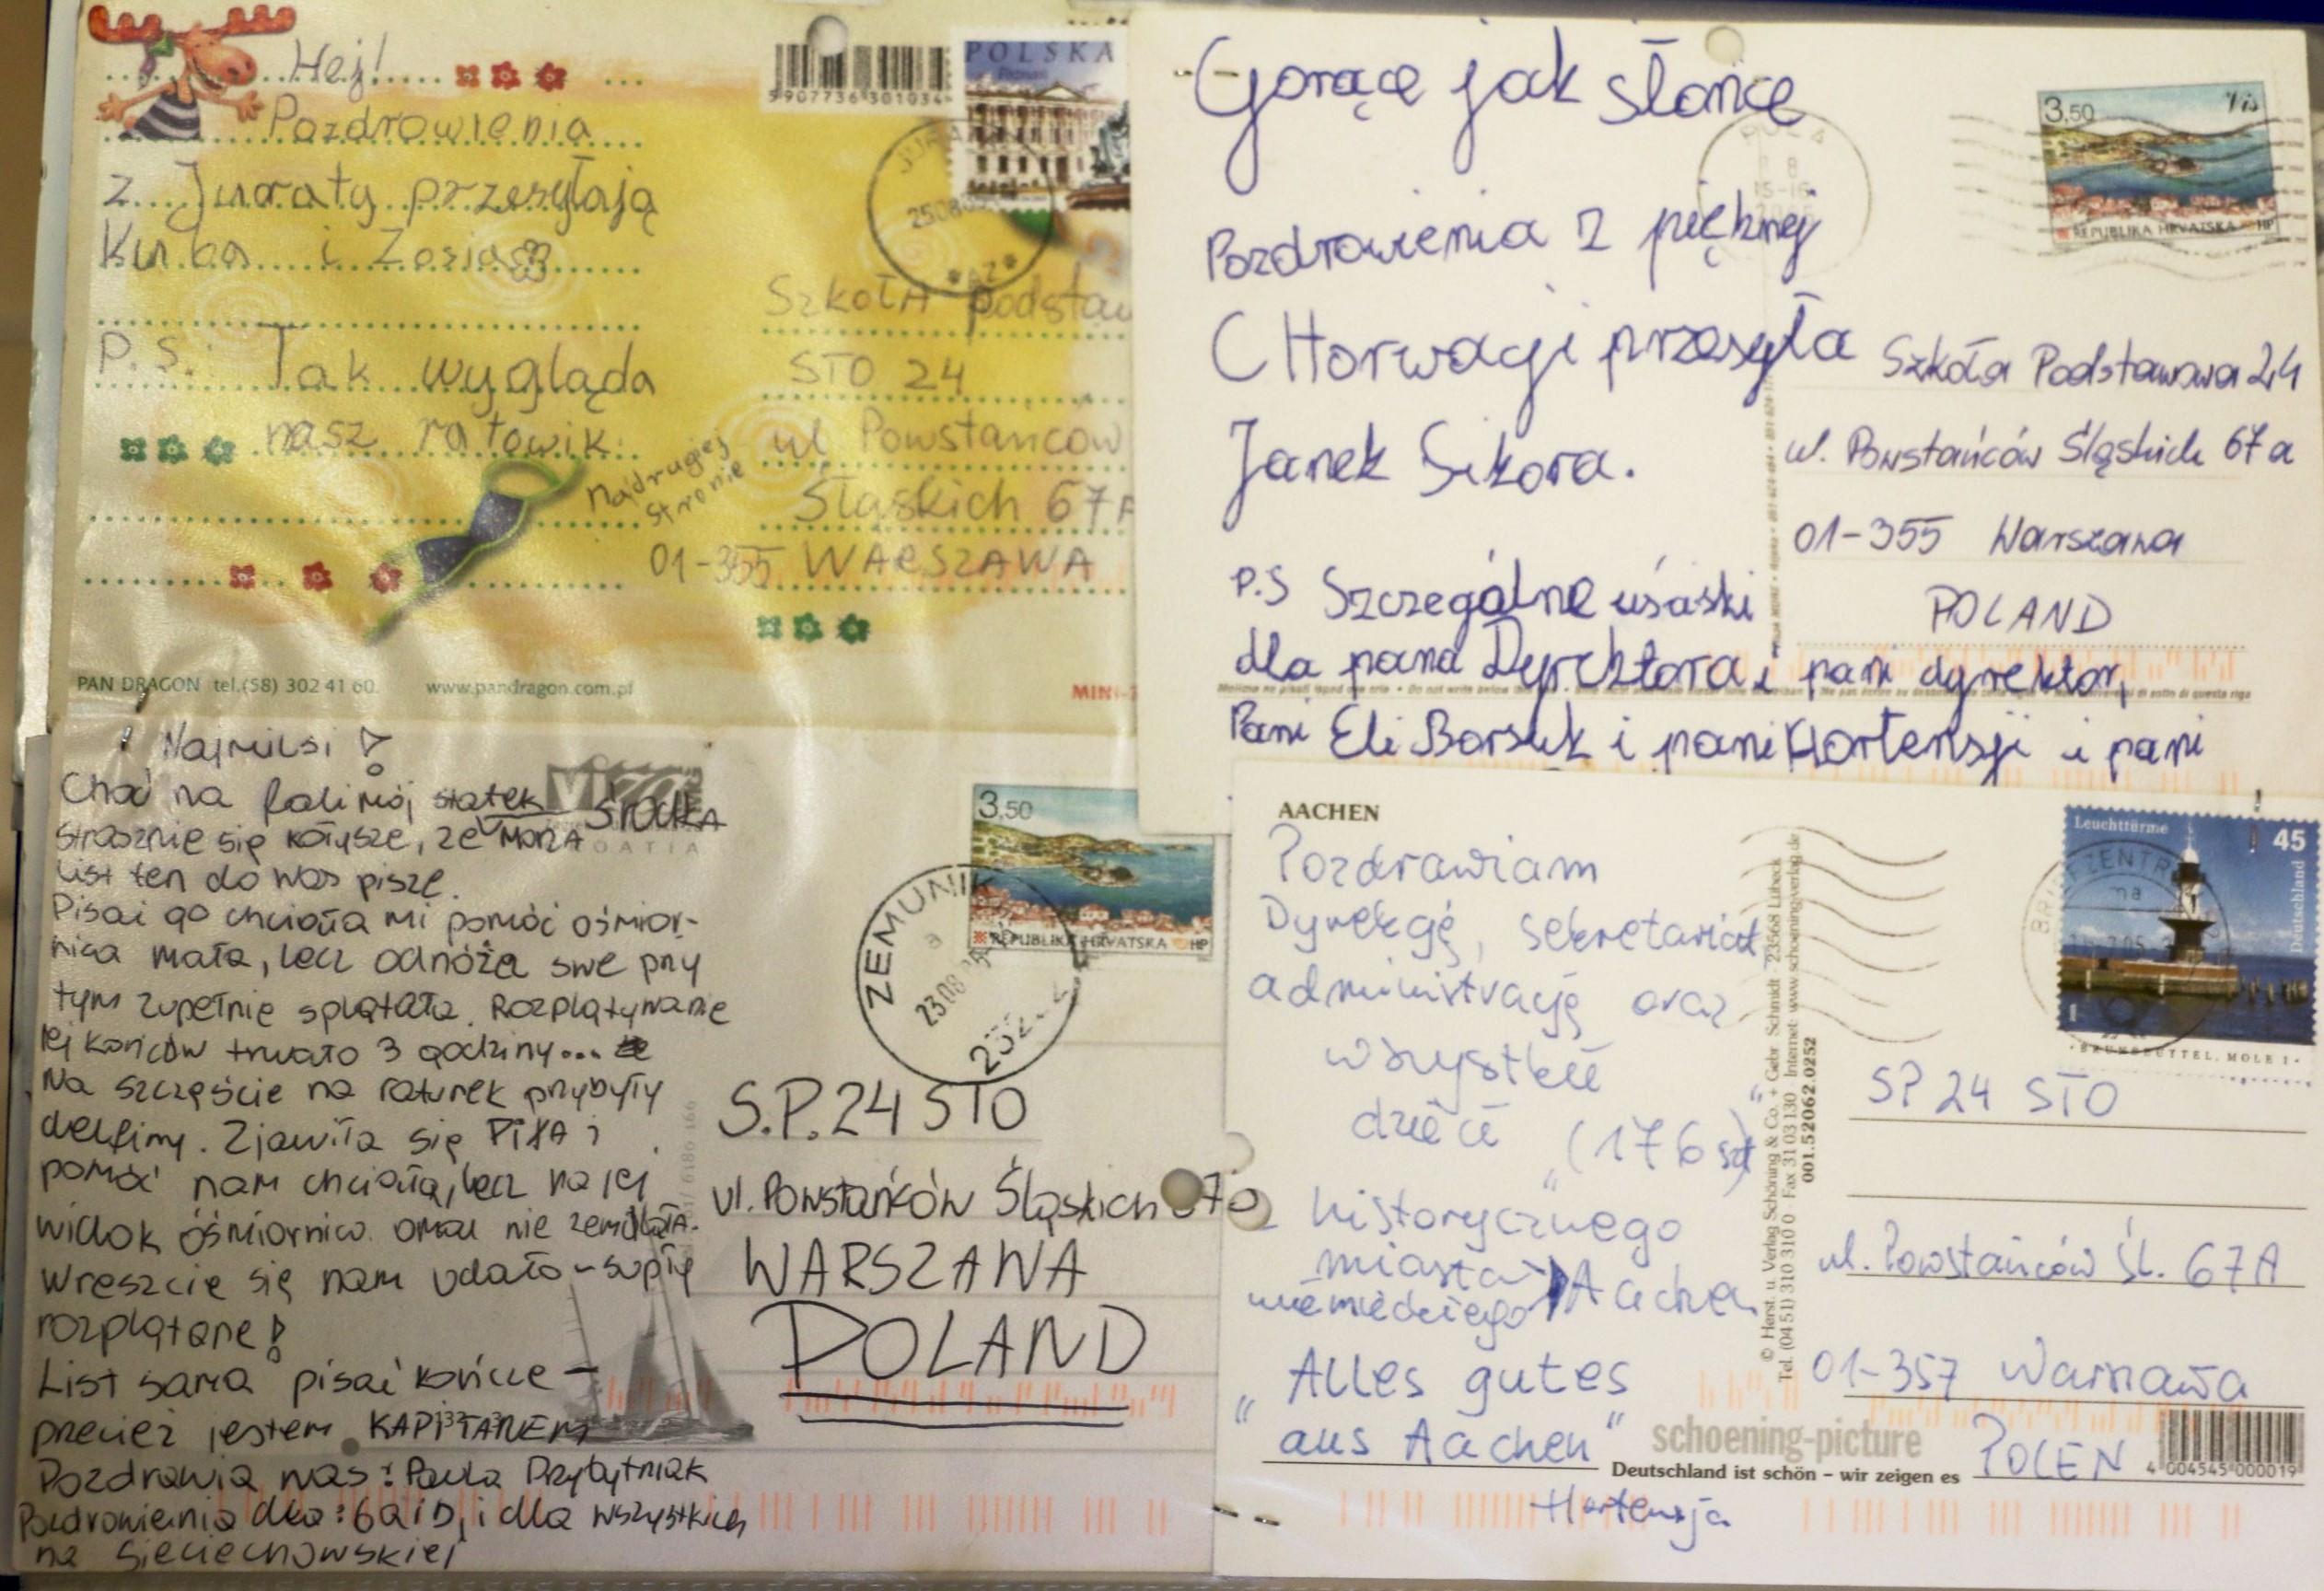 Hej!
Pozdrowienia
z Juraty przesyłają
Kuba i Zosia
P.S. Tak wygląda
nasz ratowik
Na drugiej
stronie
PAN DRAGON tel.(58) 302 41 60. www.pandragon.com.pl
MINI-
5 907736 301034
POLSKA
Poznań
25.08
Szkoła podstaw
STO 24
ul Powstańców
Śląskich 67A
01-355 WARSZAWA
Gorące jak słońce
Pozdrowienia z pięknej
CHorwacji przesyła
Janek Sikora.
P.S Szczególne uściski
dla pana Dyrektora i pani dyrektor,
Pani Eli Borsuk i pani Hortensji i pani
3,50 Vis
REPUBLIKA HRVATSKA HP
Szkoła Podstawowa 24
ul. Powstańców Śląskich 67a
01-355 Warszawa
POLAND
Najmilsi!
Choć na fali mój statek
strasznie się kołysze, że MORZA ŚRODKA
list ten do Was piszę.
Pisać go chciała mi pomóc ośmior-
nica mała, lecz odnóża swe przy
tym zupełnie splątała. Rozplątywanie
jej końców trwało 3 godziny...
Na szczęście na ratunek przybyły
delfiny. Zjawiła się PIŁA i
pomóc nam chciała, lecz na jej
widok ośmiornica omal nie zemdlała.
Wreszcie się nam udało - supły
rozplątane!
List sama pisać kończę -
przecież jestem KAPITANEM
Pozdrawia was: Paula Przybytniak
Pozdrowienia dla: 6a i D, i dla wszystkich
na Sieciechowskiej
CROATIA
3,50
REPUBLIKA HRVATSKA HP
ZEMUNIK
23.08
S.P. 24 STO
ul. Powstańców Śląskich 67a
WARSZAWA
POLAND
AACHEN
Pozdrawiam
Dyrekcję, sekretariat
administrację oraz
wszystkie
dzieci (176 szt)
z "historycznego"
miasta
niemieckiego Aachen
"Alles gutes
aus Aachen"
Hortensja
© Herst. u. Verlag Schöning & Co. + Gebr. Schmidt · 23568 Lübeck
Tel. (04 51) 310 310 0 · Fax 31 03 130 · Internet: www.schoeningverlag.de
001.52062.0252
Leuchttürme 45
Deutschland
BRUNSBÜTTEL, MOLE 1
BRIEFZENTRUM
SP 24 STO
ul. Powstańców Śl. 67A
01-357 Warszawa
POLEN
schoening-picture
Deutschland ist schön – wir zeigen es
4 004545 000019